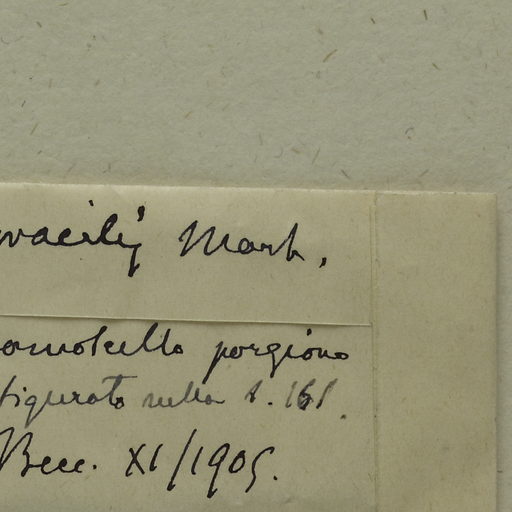 gracilis Mart.
ramoscello porgione
figurato nella t. 161.
Becc. XI/1905.